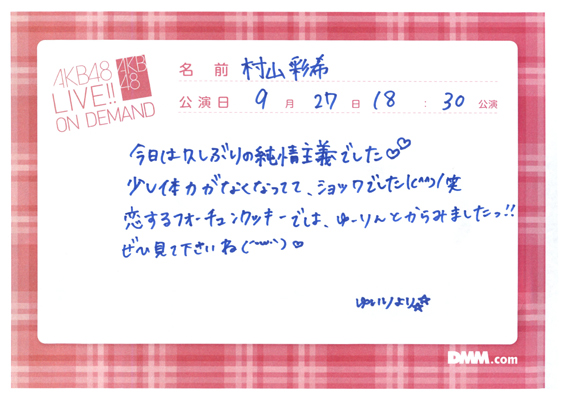 AKB48
LIVE!!
ON DEMAND
AKB
48
名前 村山彩希
公演日 9月27日 18:30 公演
今日は久しぶりの純情主義でした♡♡
少し体力がなくなってて、ショックでした!(^^)/笑
恋するフォーチュンクッキーでは、ゆーりんとからみましたっ!!
ぜひ見て下さいね(^ω^)♡
ゆいりより☆☆
DMM.com